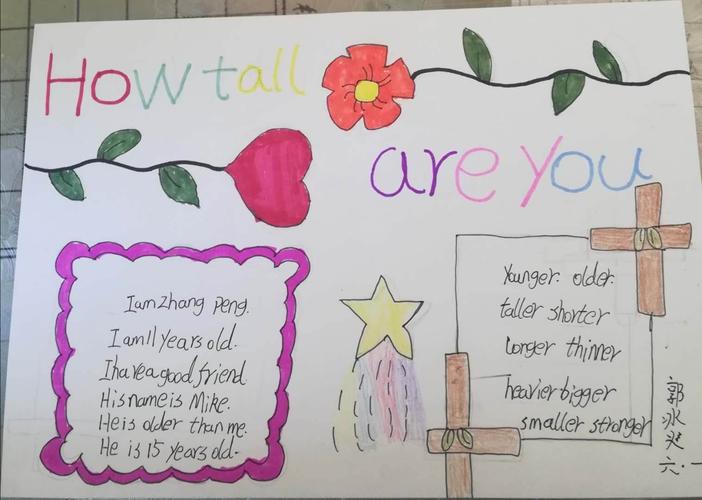 How tall
are you
I am Zhang Peng.
I am 11 years old.
I have a good friend.
His name is Mike.
He is older than me.
He is 15 years old.
Younger. older.
taller shorter
longer thinner
heavier bigger
smaller stronger
郭
六·一